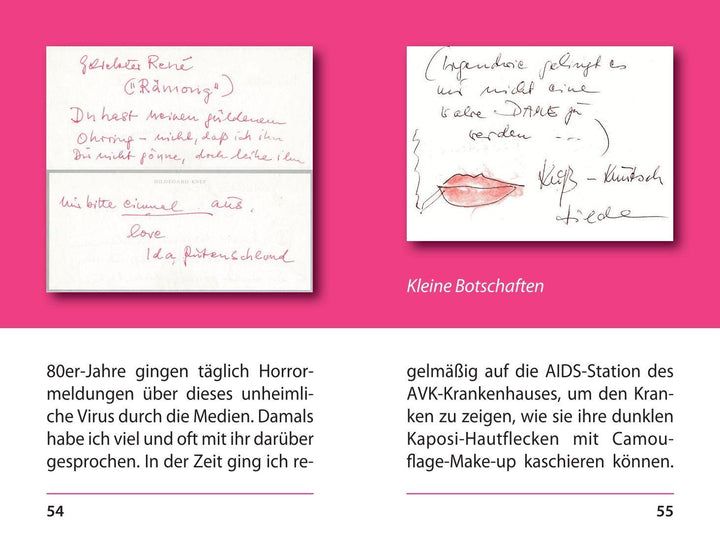 Geliebter René
("Rämong")
Du hast meinen güldenen
Ohrring – nicht, daß ich ihn
Dir nicht gönne, doch leihe ihn
HILDEGARD KNEF
mir bitte einmal aus.
love
Ida, Rutenschlond
(Irgendwie gelingt es
mir nicht eine
wahre DAME zu
werden ...)
Kuß – Knutsch
Hilde
Kleine Botschaften
80er-Jahre gingen täglich Horror-
meldungen über dieses unheimli-
che Virus durch die Medien. Damals
habe ich viel und oft mit ihr darüber
gesprochen. In der Zeit ging ich re-
54
gelmäßig auf die AIDS-Station des
AVK-Krankenhauses, um den Kran-
ken zu zeigen, wie sie ihre dunklen
Kaposi-Hautflecken mit Camou-
flage-Make-up kaschieren können.
55